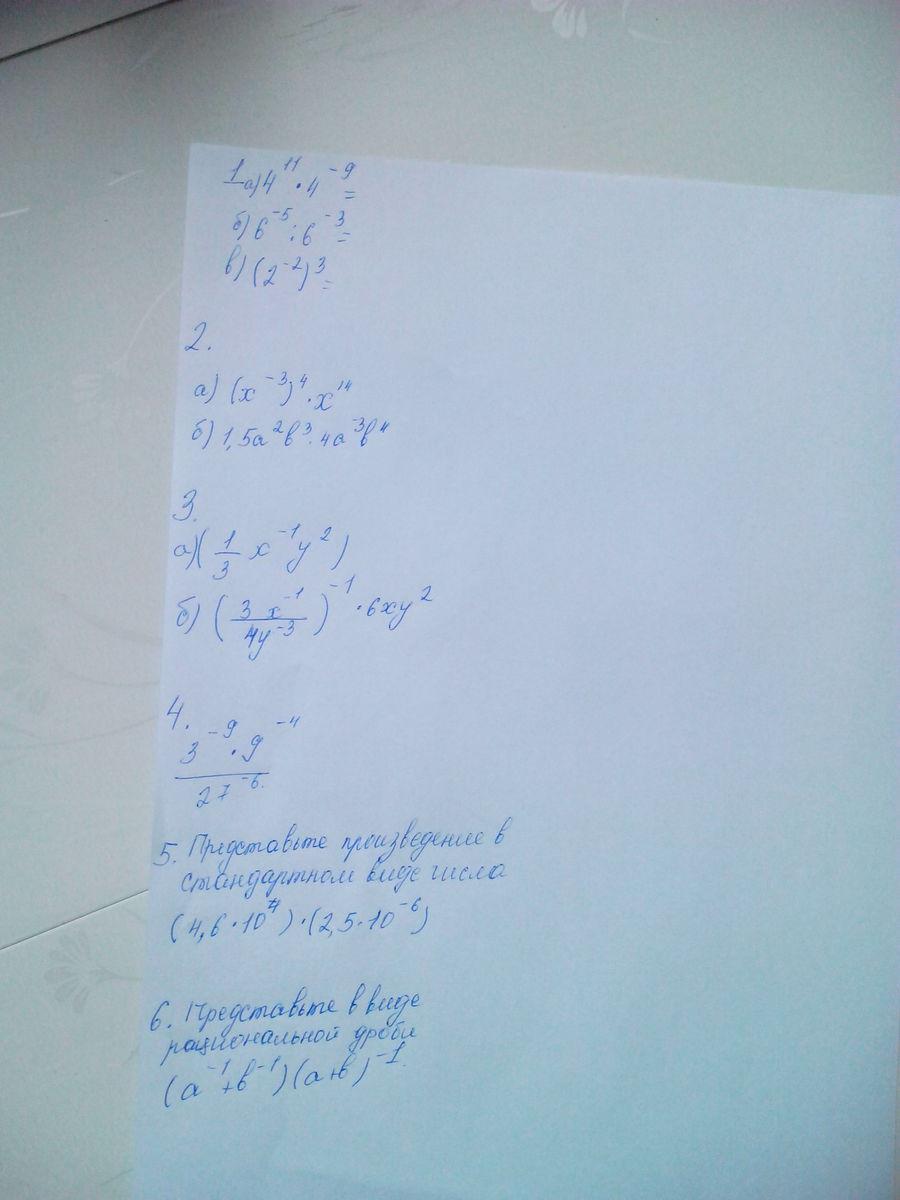 1 а) 4¹¹ · 4⁻⁹ =
б) 6⁻⁵ : 6⁻³ =
в) (2⁻²)³ =
2.
а) (x⁻³)⁴ · x¹⁴
б) 1,5a²b³ · 4a⁻³b⁴
3.
а) (1/3 x⁻¹y²)
б) (3x⁻¹/4y⁻³)⁻¹ · 6xy²
4.
3⁻⁹ · 9⁻⁴
27⁻⁶.
5. Представьте произведение в
стандартном виде числа
(4,6 · 10⁴) · (2,5 · 10⁻⁶)
6. Представьте в виде
рациональной дроби
(a⁻¹ + b⁻¹)(a+b)⁻¹.